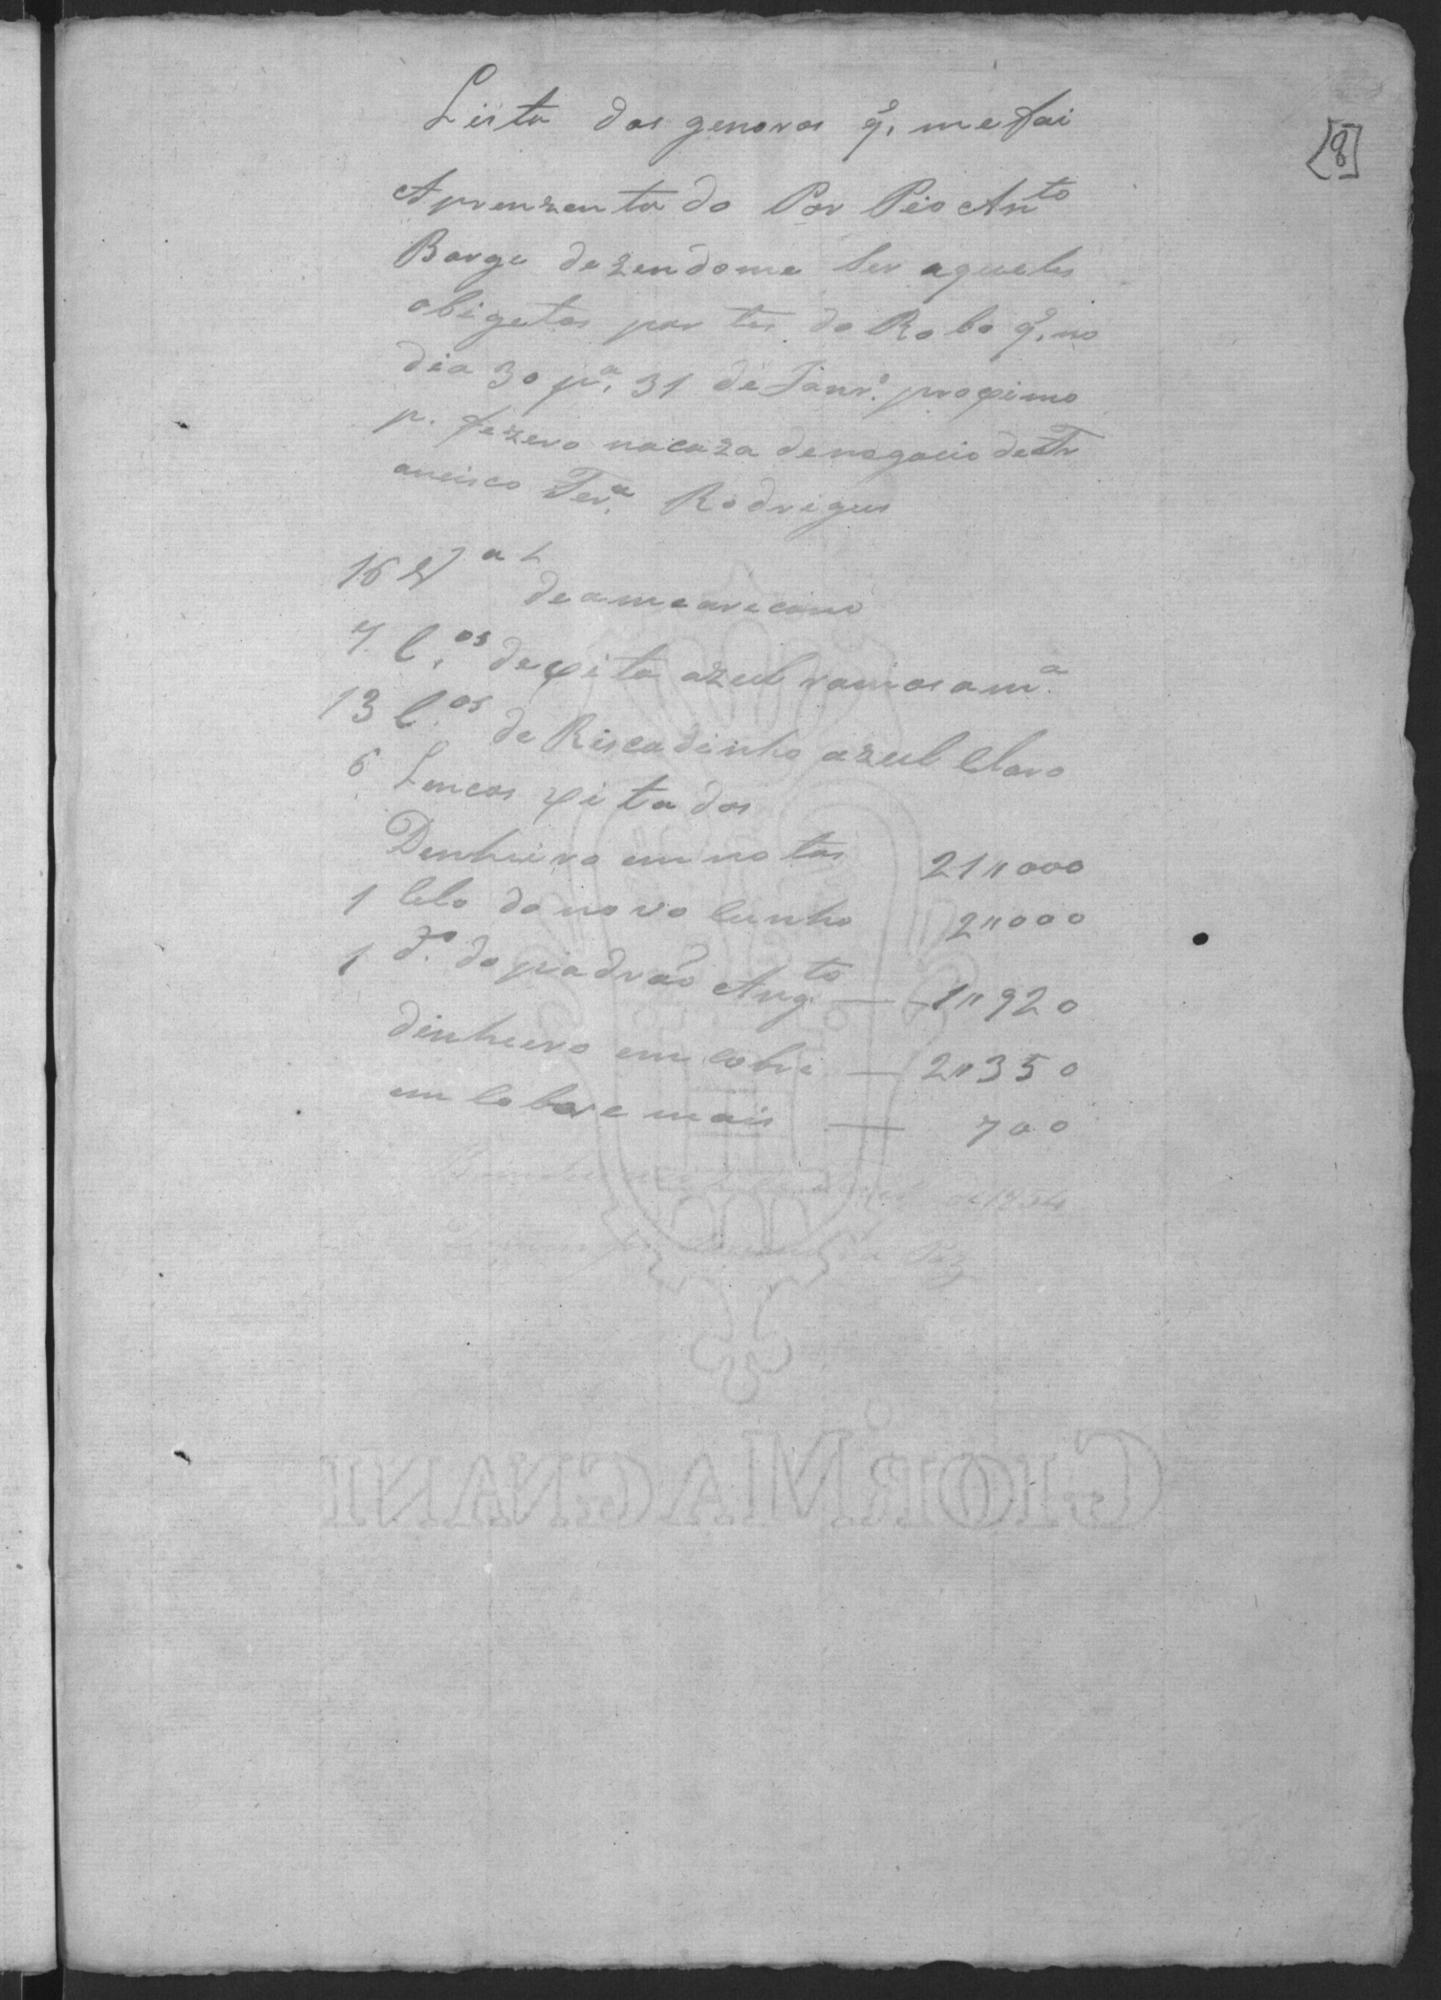 [8]
Lista dos genoros q̃. me foi
Aprenzentado Por Pio An.to
Borge dezendome Ser aqueles
obigetos por tes do Robo q̃. no
dia 30 p.a 31 de Janr.o proximo
p. fezero nacaza denogocio de Fr
ancisco Fer.a Rodrigues
16
deamearecano
7 C.os dexita azul ramos am.a
13 C.os de Riscadinho azul Claro
6 Lencos xitados
Denheiro em notas 21"000
1 Clo do novo Cunho 2"000
1 d.o do padrão Ang.to — 1"920
dinheiro em Cobre — 2"350
em Cobre mais — 700
de 1854
GIOR MAGNANI